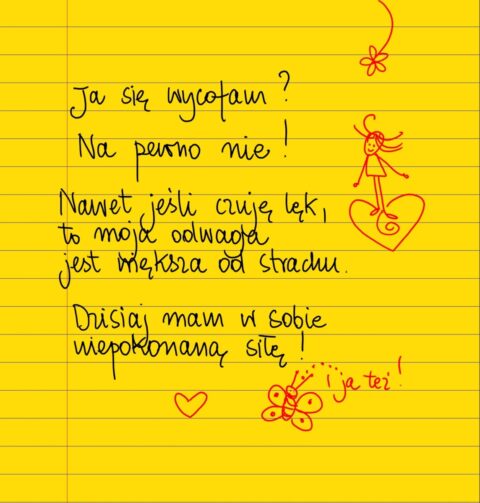 Ja się wycofam?
Na pewno nie!
Nawet jeśli czuję lęk,
to moja odwaga
jest większa od strachu.
Dzisiaj mam w sobie
niepokonaną siłę!
i ja też!